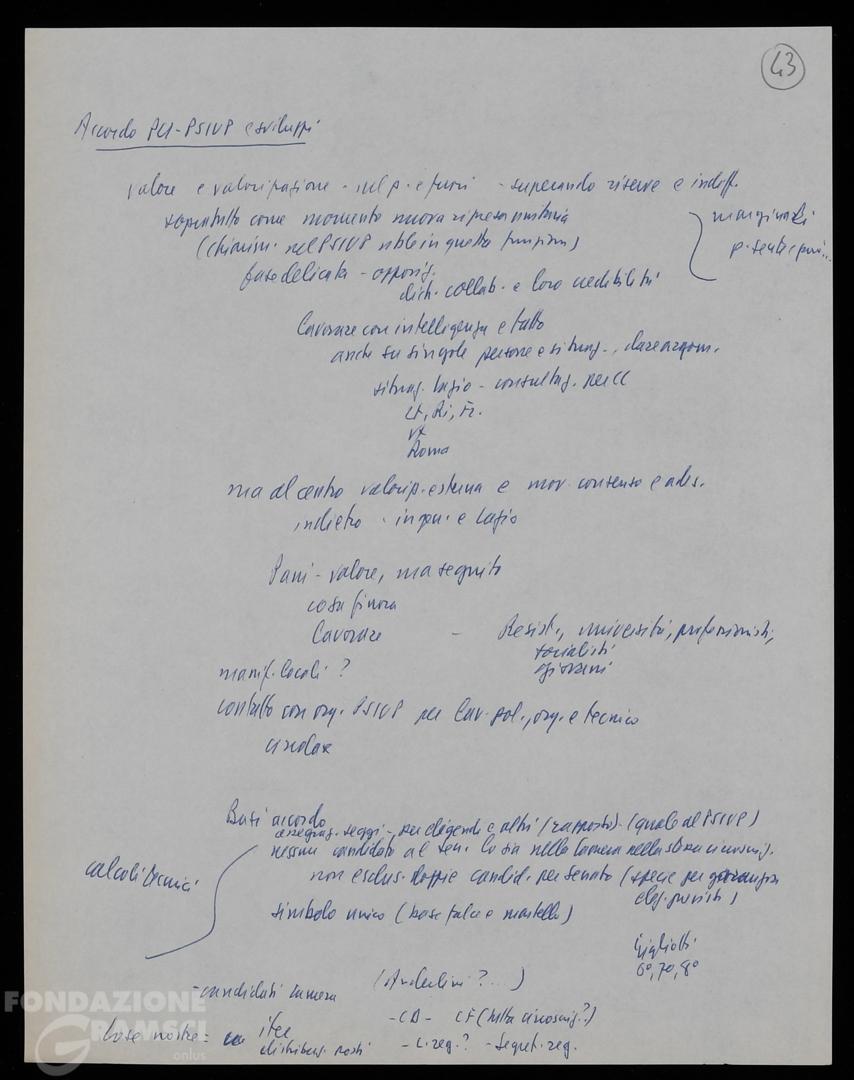 43
Accordo PCI-PSIUP e sviluppi
valore e valorizzazione - nel p. e fuori - superando riserve e indiff.
soprattutto come momento nuova ripresa unitaria
marginali
(chiarim. nel PSIUP utile in questa funzione)
p. sente
fase delicata - opposiz.
dich. collab. e loro credibilità
Lavorare con intelligenza e tatto
anche su singole persone e situaz., dare argom.
situaz. Lazio - consultaz. nei CC
Lt, Ri, Fr.
Vt
Roma
ma al centro valorizz. esterna e mov. consenso e ades.
indietro - in gen. e Lazio
Parri - valore, ma seguito
cosa finora
Lavorare - Resist., università, professionisti,
socialisti
giovani
manif. locali ?
contatto con org. PSIUP per lav. pol., org. e tecnico
circolare
Basi accordo
assegnaz. seggi - per eligendi e altri (rapporto) - (quale al PSIUP)
nessun candidato al Sen. lo sia nella Camera nella stessa circoscriz.
calcoli tecnici
non esclus. doppie candid. per Senato (specie per
elez. previsti)
simbolo unico (base falce e martello)
Gigliotti
6°, 7°, 8°
- candidati camera (Anderlini ? ...)
- CD - CF (tutta circoscriz.?)
liste nostre =
distribuz. posti - C. reg. ? - Segret. reg.
FONDAZIONE
GRAMSCI
onlus